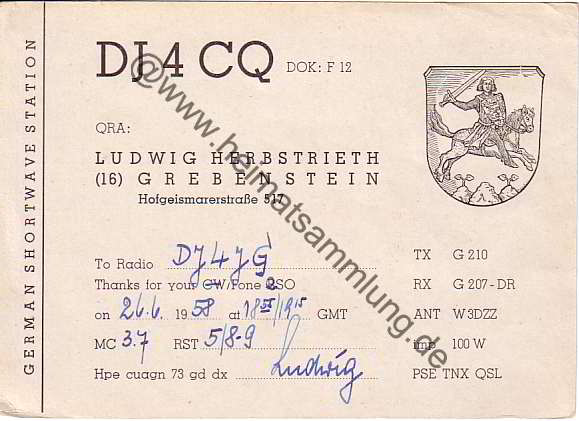 GERMAN SHORTWAVE STATION
DJ4CQ DOK: F 12
QRA:
LUDWIG HERBSTRIETH
(16) GREBENSTEIN
Hofgeismarerstraße 517
To Radio DJ4JG TX G 210
Thanks for your CW/Fone 2 QSO RX G 207-DR
on 26.6. 1958 at 18⁵⁵/19¹⁵ GMT ANT W3DZZ
MC 3.7 RST 5/8-9 imp 100 W
Hpe cuagn 73 gd dx Ludwig PSE TNX QSL
@www.heimatsammlung.de